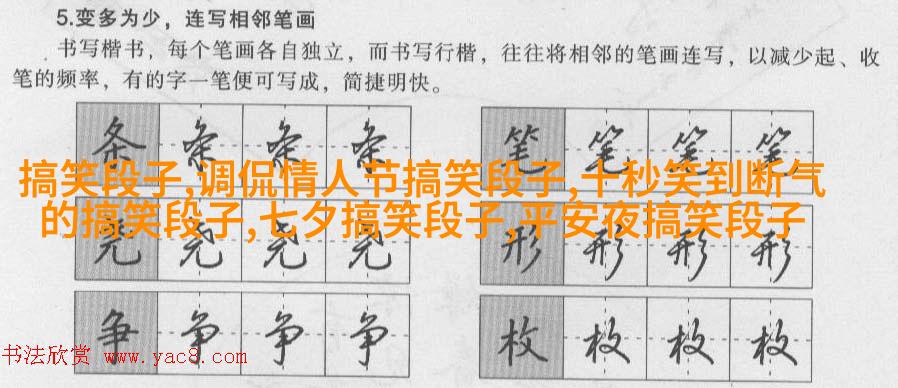 5.变多为少，连写相邻笔画
书写楷书，每个笔画各自独立，而书写行楷，往往将相邻的笔画连写，以减少起、收
笔的频率，有的字一笔便可写成，简捷明快。
条 条 条 条 笔 笔 笔 笔
搞笑段子,调侃情人节搞笑段子,十秒笑到断气
的搞笑段子,七夕搞笑段子,平安夜搞笑段子
尧 尧 尧 尧 形 形 形 形
争 争 争 争 枚 枚 枚 枚
书法欣赏 www.yac8.com